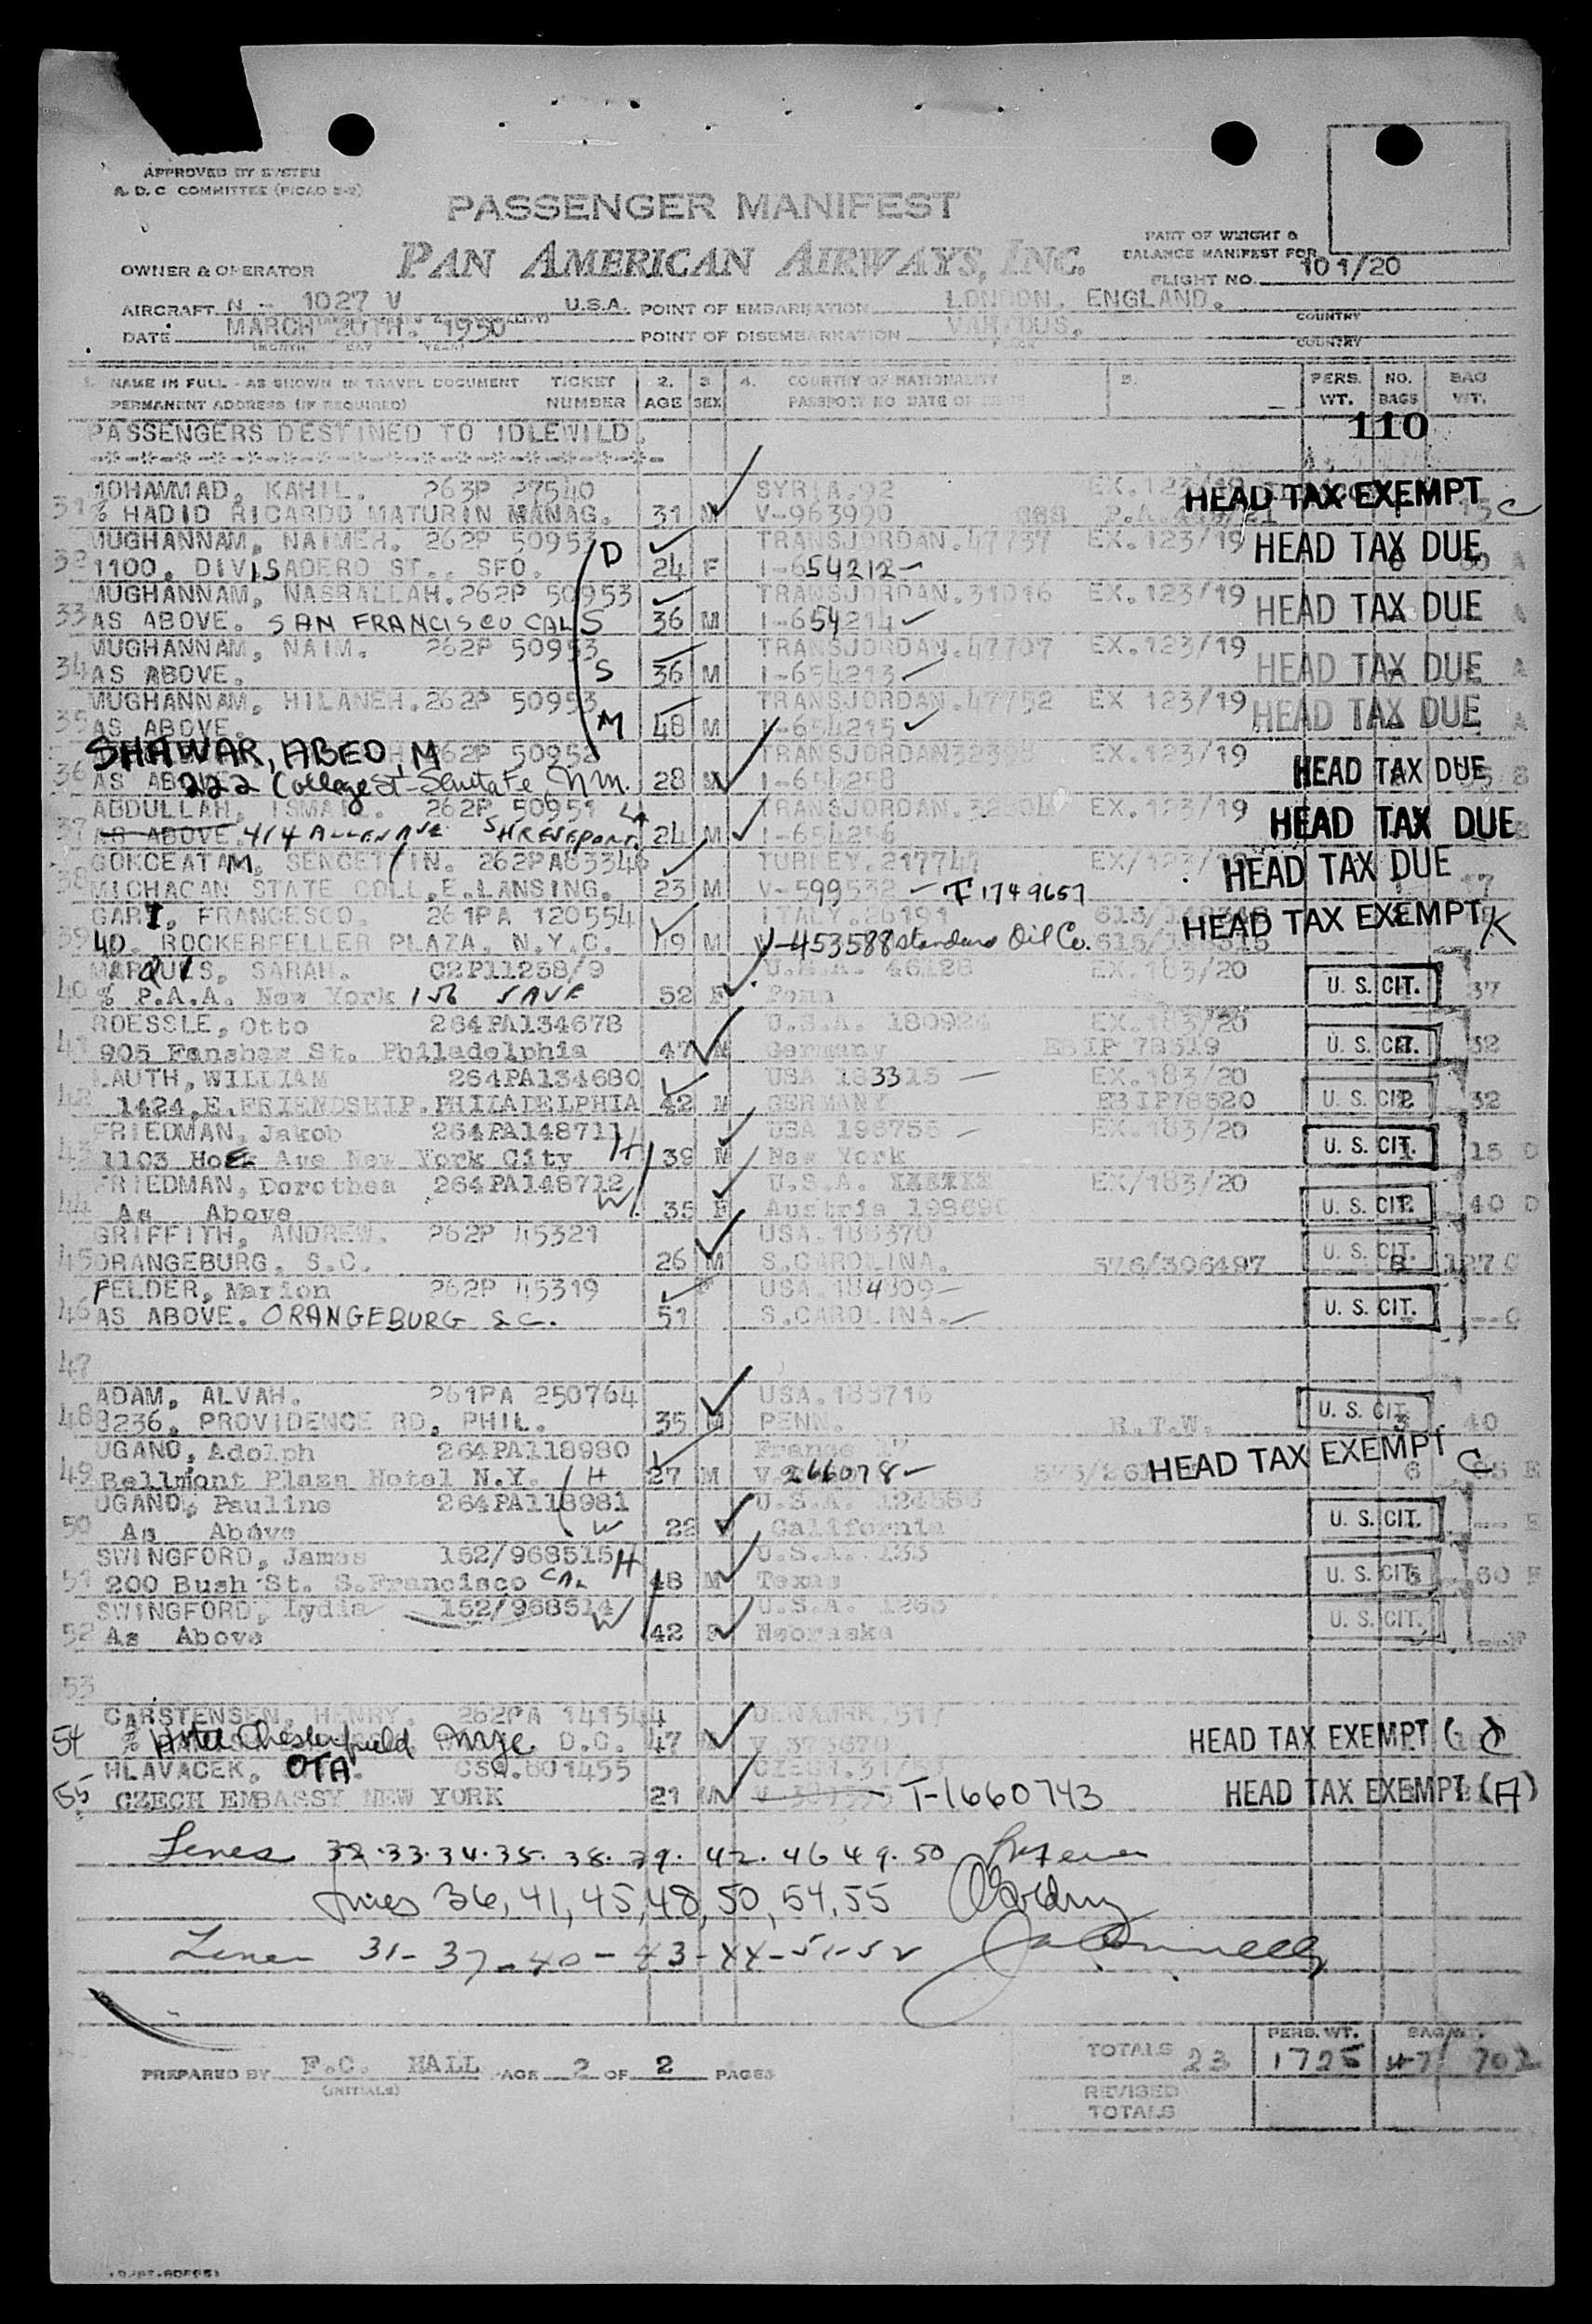 APPROVED BY SYSTEM
A. D. C COMMITTEE (PICAO 2-2)
PASSENGER MANIFEST
PART OF WEIGHT &
BALANCE MANIFEST FOR
OWNER & OPERATOR PAN AMERICAN AIRWAYS, INC.
FLIGHT NO. 101/20
AIRCRAFT N - 1027 V U.S.A. POINT OF EMBARKATION LONDON, ENGLAND.
COUNTRY
DATE MARCH 20TH. 1950 POINT OF DISEMBARKATION VARIOUS.
COUNTRY
1. NAME IN FULL - AS SHOWN IN TRAVEL DOCUMENT TICKET 2. 3. 4. COUNTRY OF NATIONALITY 5. PERS. NO. BAG
PERMANENT ADDRESS (IF REQUIRED) NUMBER AGE SEX PASSPORT NO DATE OF ISSUE WT. BAGS WT.
PASSENGERS DESTINED TO IDLEWILD. 110
MOHAMMAD, KAHIL. 263P 27540 SYRIA.92 HEAD TAX EXEMPT
31 % HADID RICARDO MATURIN MANAG. 31 M V-963990 15 C
MUGHANNAM, NAIMEH. 262P 50953 D TRANSJORDAN.47737 EX.123/19 HEAD TAX DUE
32 1100. DIVISADERO ST., SFO. 24 F I-654212 A
MUGHANNAM, NASRALLAH.262P 50953 TRANSJORDAN.31016 EX.123/19 HEAD TAX DUE
33 AS ABOVE. SAN FRANCISCO CAL S 36 M I-654214 A
MUGHANNAM, NAIM. 262P 50953 TRANSJORDAN.47707 EX.123/19 HEAD TAX DUE
34 AS ABOVE. S 36 M I-654213 A
MUGHANNAM, HILANEH.262P 50953 TRANSJORDAN.47752 EX 123/19 HEAD TAX DUE
35 AS ABOVE. M 48 M I-654215 A
SHAWAR, ABED, M 262P 50952 EX.123/19 HEAD TAX DUE
36 222 College St 28 M I-654258 B
ABDULLAH, ISMAIL. 262P 50951 LA EX.123/19 HEAD TAX DUE
37 AS ABOVE. 414 ALLEN AVE SHREVEPORT. 24 M I-654256
GOKCEATAM, SENCETTIN. 262PA83346 TURKEY.217747 HEAD TAX DUE
38 MICHACAN STATE COLL.E.LANSING. 23 M V-599532 - T 1749657 17
GARI, FRANCESCO. 261PA 120554 ITALY.26191 HEAD TAX EXEMPT K
39 40. ROCKERFELLER PLAZA. N.Y.C. 49 M V-453588 Standard Oil Co.
MARQUIS, SARAH. 02P11258/9 U.S.A. 46128 EX.183/20
40 % P.A.A. New York 52 F Penn U. S. CIT. 37
ROESSLE, Otto 264PA134678 U.S.A. 180924 EX.183/20
41 905 Fanshaw St. Philadelphia 47 M Germany EBIP 78519 U. S. CIT. 32
LAUTH, WILLIAM 264PA134680 USA 183315 EX.183/20
42 1424.E.FRIENDSHIP.PHILADELPHIA 42 M GERMANY EBIP78520 U. S. CIT. 32
FRIEDMAN, Jakob 264PA148711 H USA 196756 EX.183/20
43 1103 Hoek Ave New York City 39 M New York U. S. CIT. 15 D
FRIEDMAN, Dorothea 264PA148712 W U.S.A. EX/183/20
44 As Above 35 F Austria 198690 U. S. CIT. 40 D
GRIFFITH, ANDREW. 262P 45321 USA.188370
45 ORANGEBURG, S.C. 26 M S.CAROLINA. 576/306497 U. S. CIT. 127 C
FELDER, Marion 262P 45319 F USA.184309
46 AS ABOVE. ORANGEBURG S.C. 51 S.CAROLINA. U. S. CIT. --C
47
ADAM, ALVAH. 261PA 250764 USA.188716
48 8236. PROVIDENCE RD, PHIL. 35 M PENN. R.T.W. U. S. CIT. 3 40
UGAND, Adolph 264PA118980 France HEAD TAX EXEMPT C
49 Bellmont Plaza Hotel N.Y. H 27 M V 266078 6 E
UGAND, Pauline 264PA118981 U.S.A. 124586
50 As Above W 22 California U. S. CIT. -- E
SWINGFORD, James 152/968515 H U.S.A. 135
51 200 Bush St. S.Francisco CAL 48 M Texas U. S. CIT. 60 F
SWINGFORD, Lydia 152/968514 W U.S.A. 1263
52 As Above 42 F Neoraska U. S. CIT. --F
53
CARSTENSEN, HENRY. 262PA 141544 DENAMRK.517
54 % Hotel Chesterfield D.C. 47 V 373670 HEAD TAX EXEMPT
HLAVACEK, OTA CSA.601455
55 CZECH EMBASSY NEW YORK 21 M T-1660743 HEAD TAX EXEMPT (A)
Lines 32.33.34.35. 38.39. 42. 46 49. 50
Lines 36, 41, 45, 48, 50, 54, 55
Lines 31-37-40-43-44-51-52
PREPARED BY F.C. HALL PAGE 2 OF 2 PAGES
(INITIALS)
TOTALS 23 PERS. WT. 1725 BAG WT. 47/ 702
REVISED
TOTALS